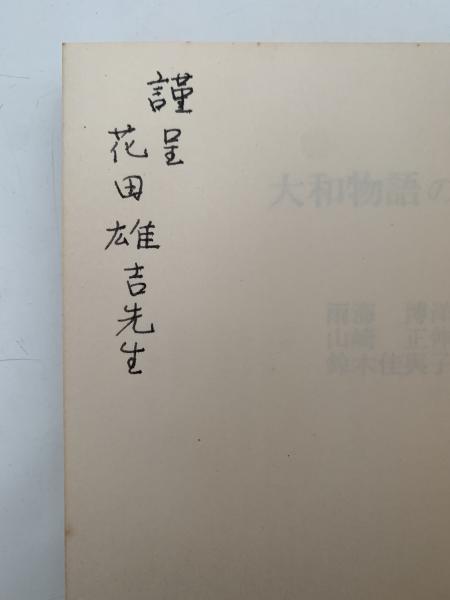 謹呈
花田雄吉先生
大和物語の
雨海 博洋
山崎 正伸
鈴木佳與子